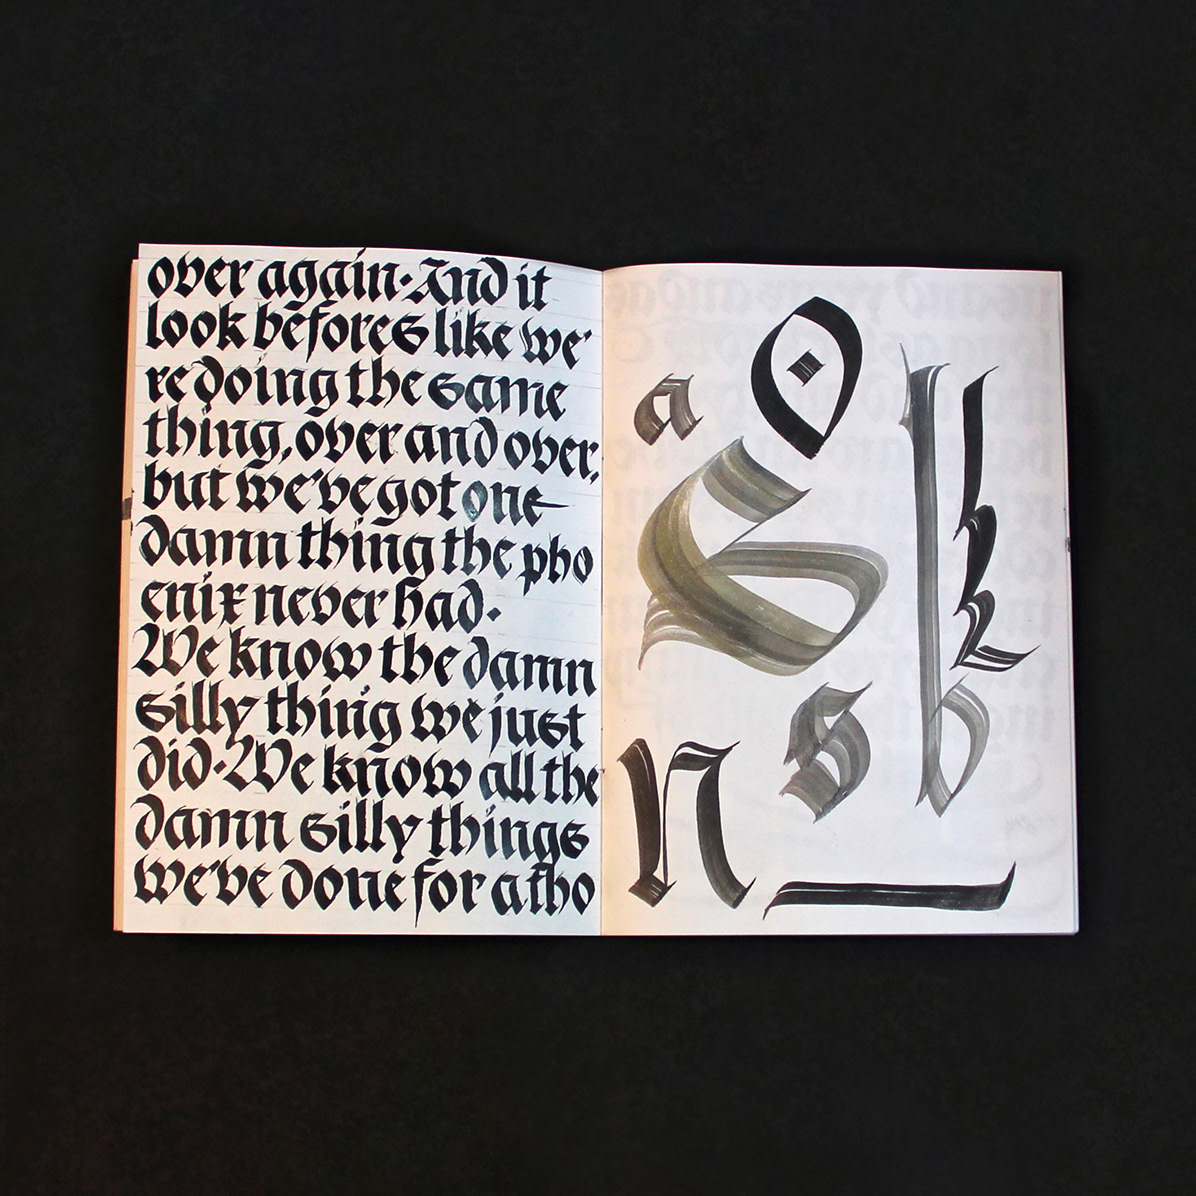 over again·And it
look befores like we'
re doing the same
thing, over and over,
but we've got one
damn thing the pho
enix never had·
We know the damn
silly thing we just
did·We know all the
damn silly things
we've done for a tho
a
o
s
l
k
s
b
n